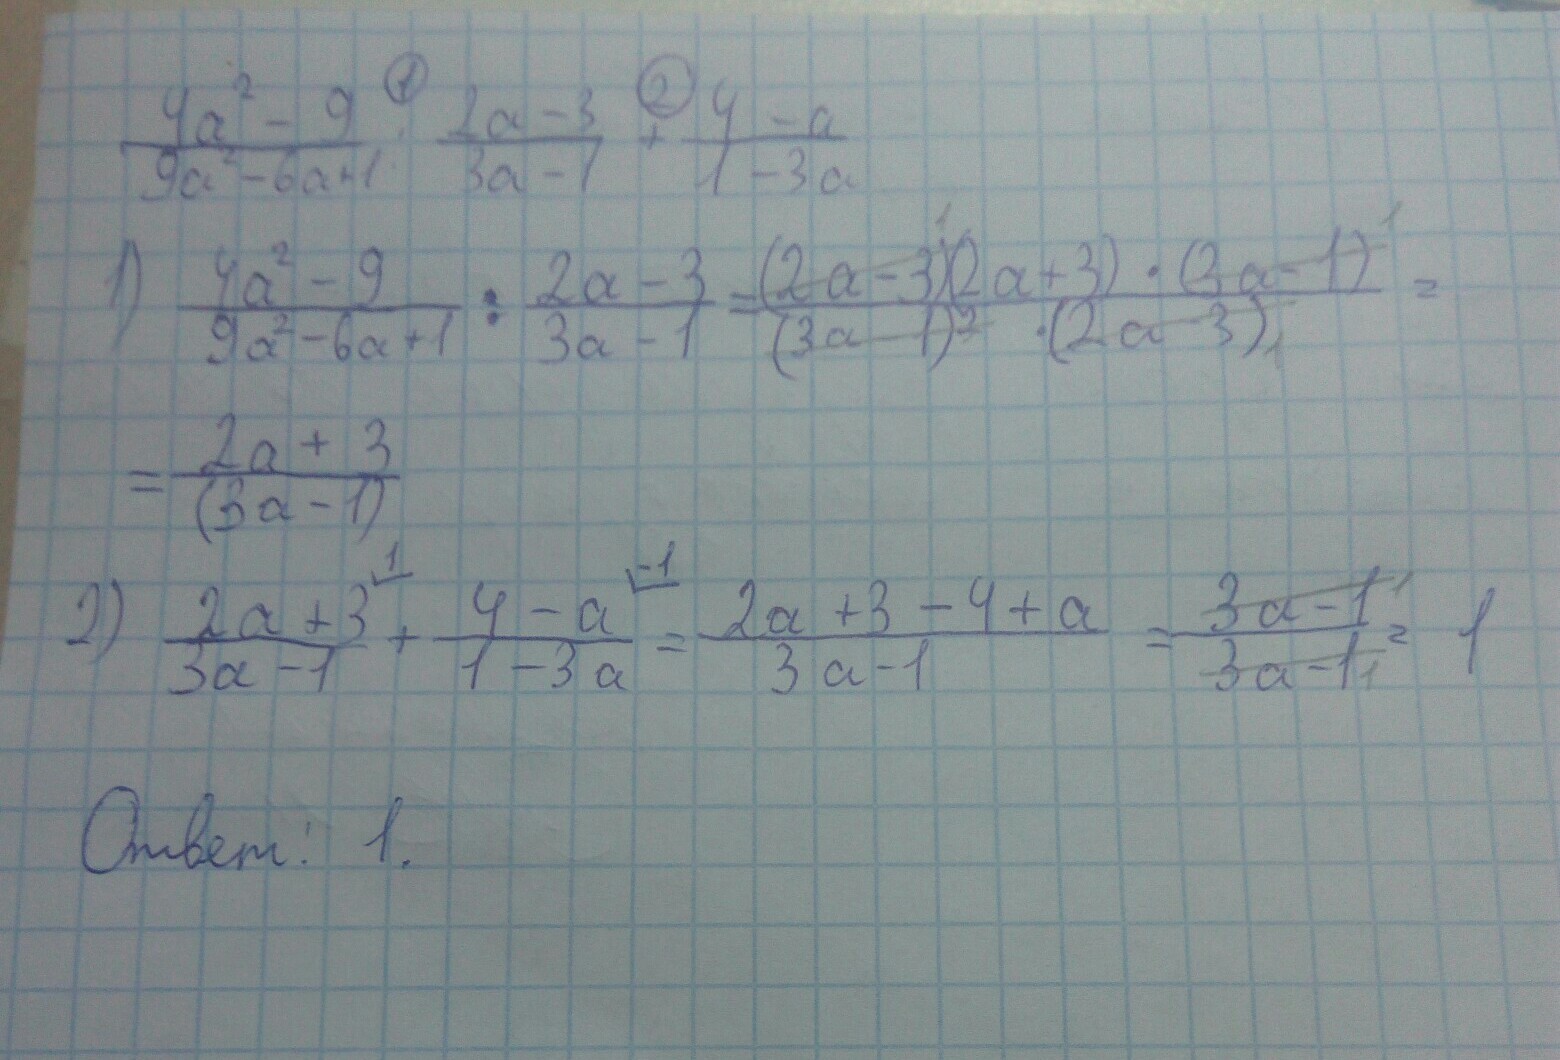 (4a² − 9)/(9a² − 6a + 1) : (2a − 3)/(3a − 1) + (4 − a)/(1 − 3a) ① ②
1) (4a² − 9)/(9a² − 6a + 1) : (2a − 3)/(3a − 1) = ((2a − 3)(2a + 3) · (3a − 1))/((3a − 1)² · (2a − 3)) =
= (2a + 3)/(3a − 1)
2) (2a + 3)/(3a − 1) + (4 − a)/(1 − 3a) = (2a + 3 − 4 + a)/(3a − 1) = (3a − 1)/(3a − 1) = 1
Ответ: 1.